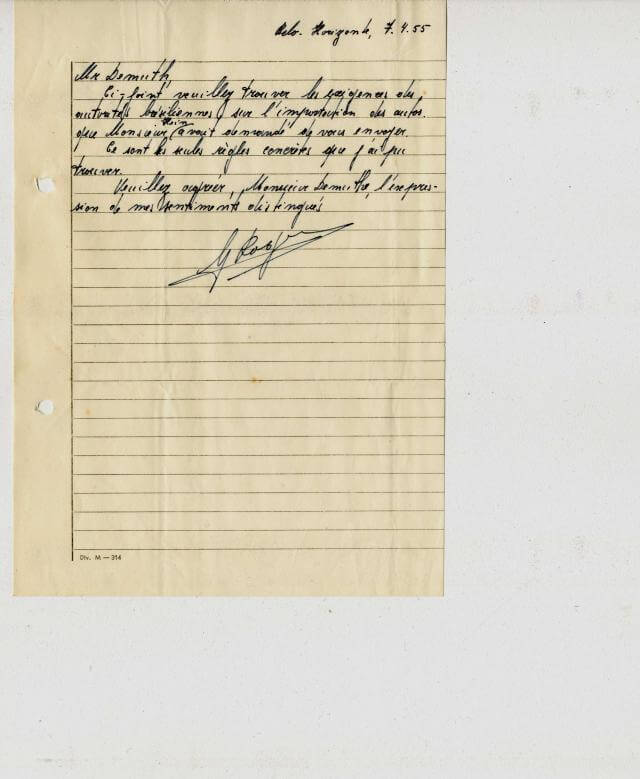 Belo-Horizonte, 7.4.55
Mr Demuth,
Ci-joint veuillez trouver les exigences des
autorités brésiliennes, sur l'importation des autos.
que Monsieur Hein avait demandé de vous envoyer.
Ce sont les seules règles concrètes que j'ai pu
trouver.
Veuillez agréer, Monsieur Demuth, l'expres-
sion de mes sentiments distingués
Div. M — 314